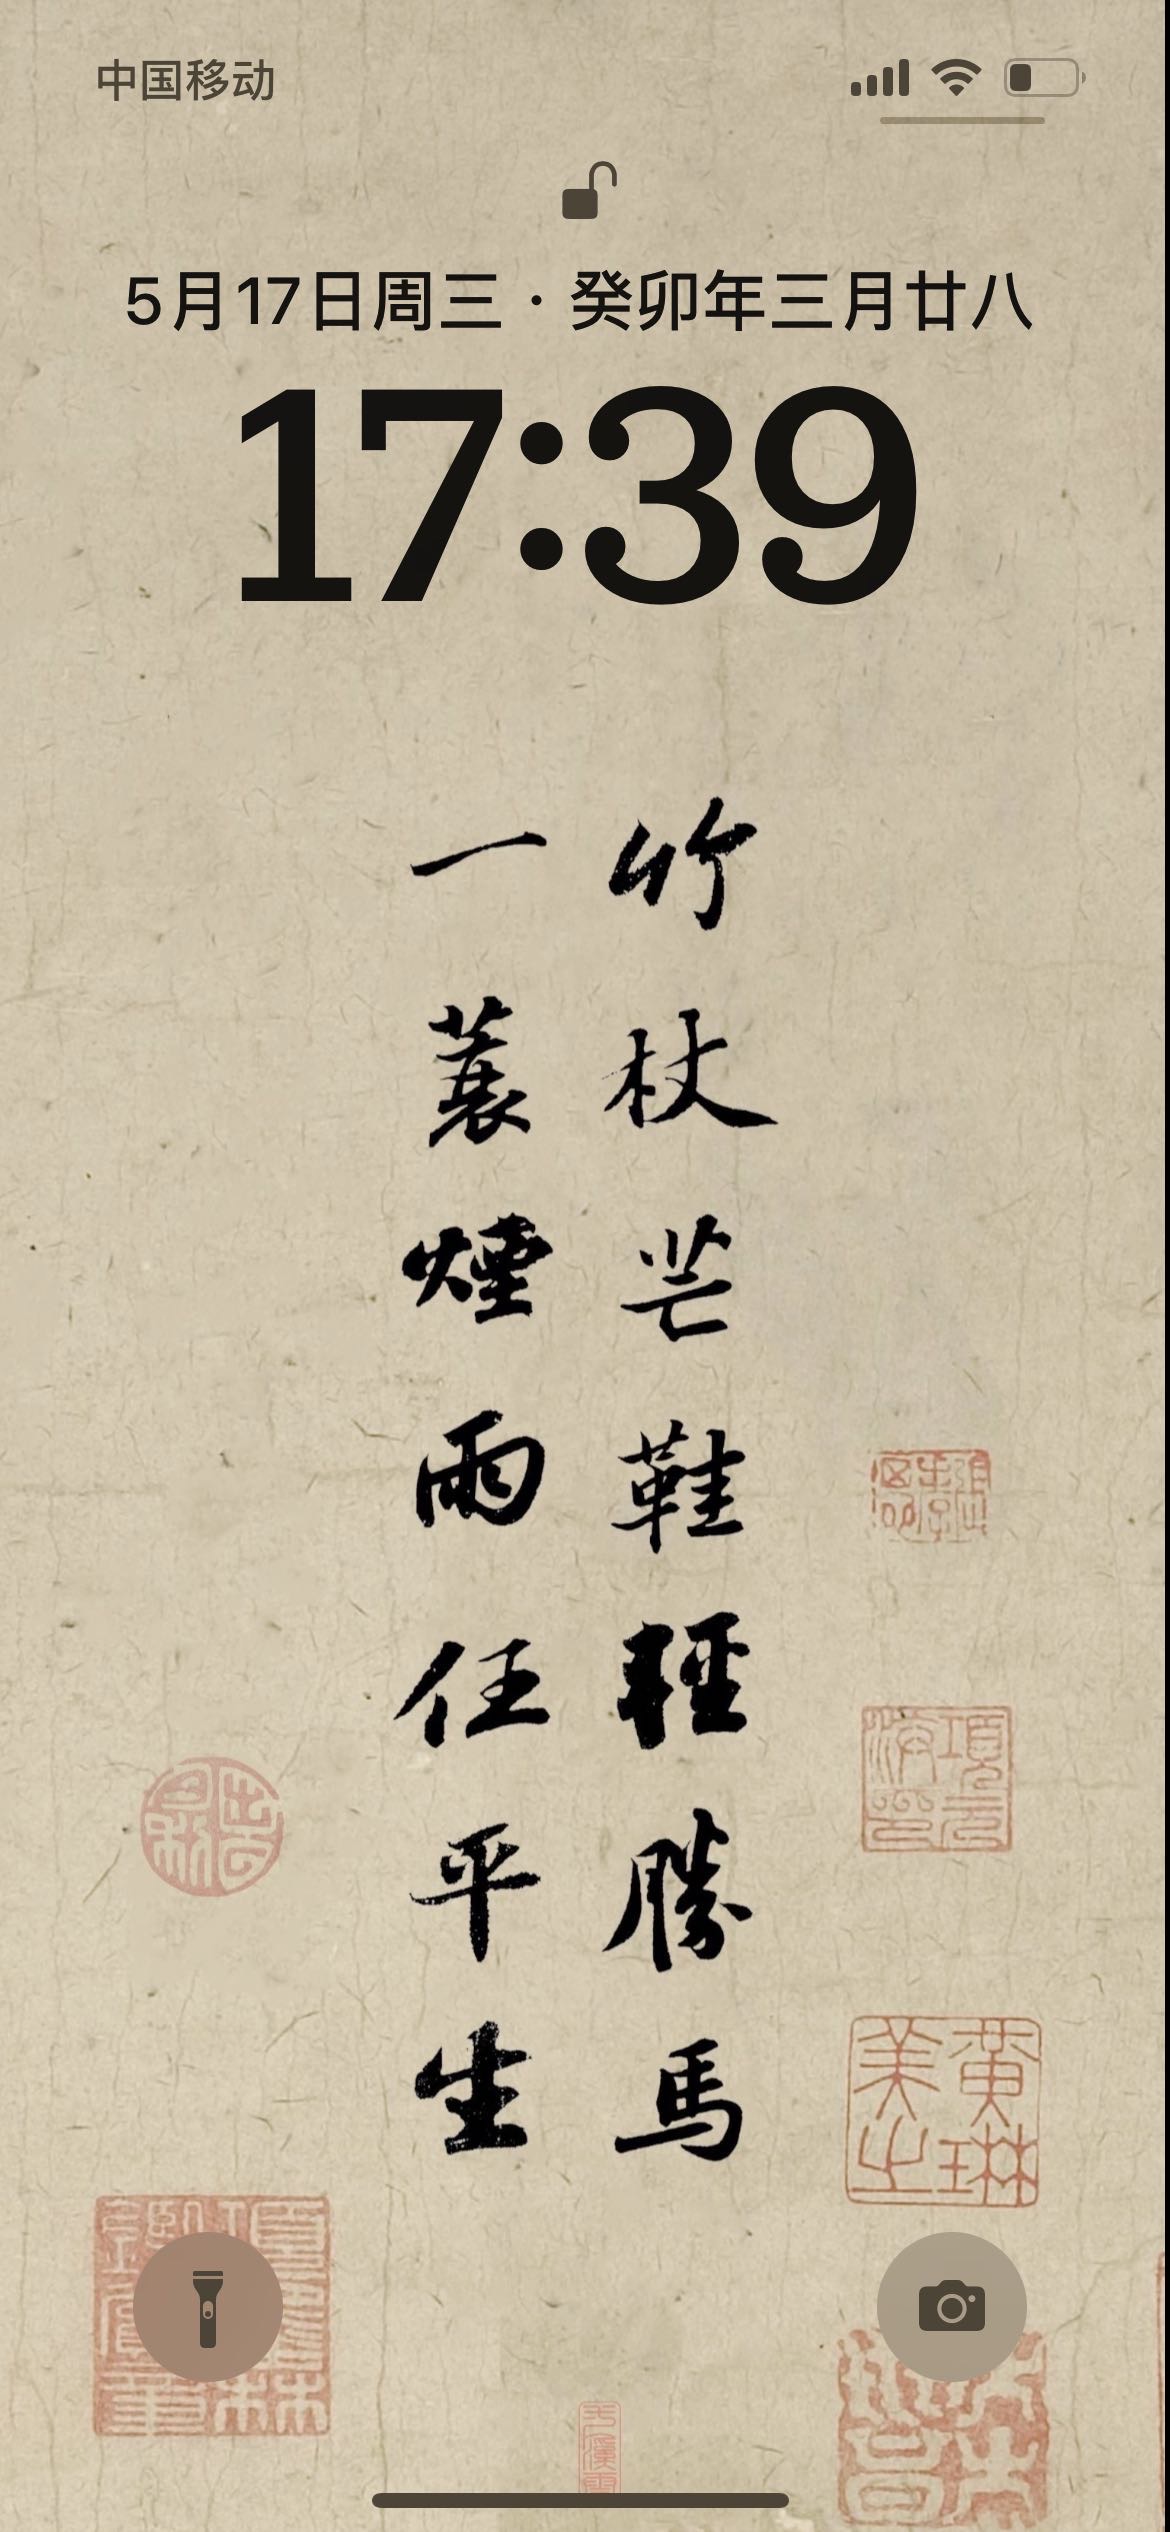 中国移动
5月17日周三 · 癸卯年三月廿八
17:39
竹杖芒鞋輕勝馬
一蓑煙雨任平生
項元汴印
黃琳美之